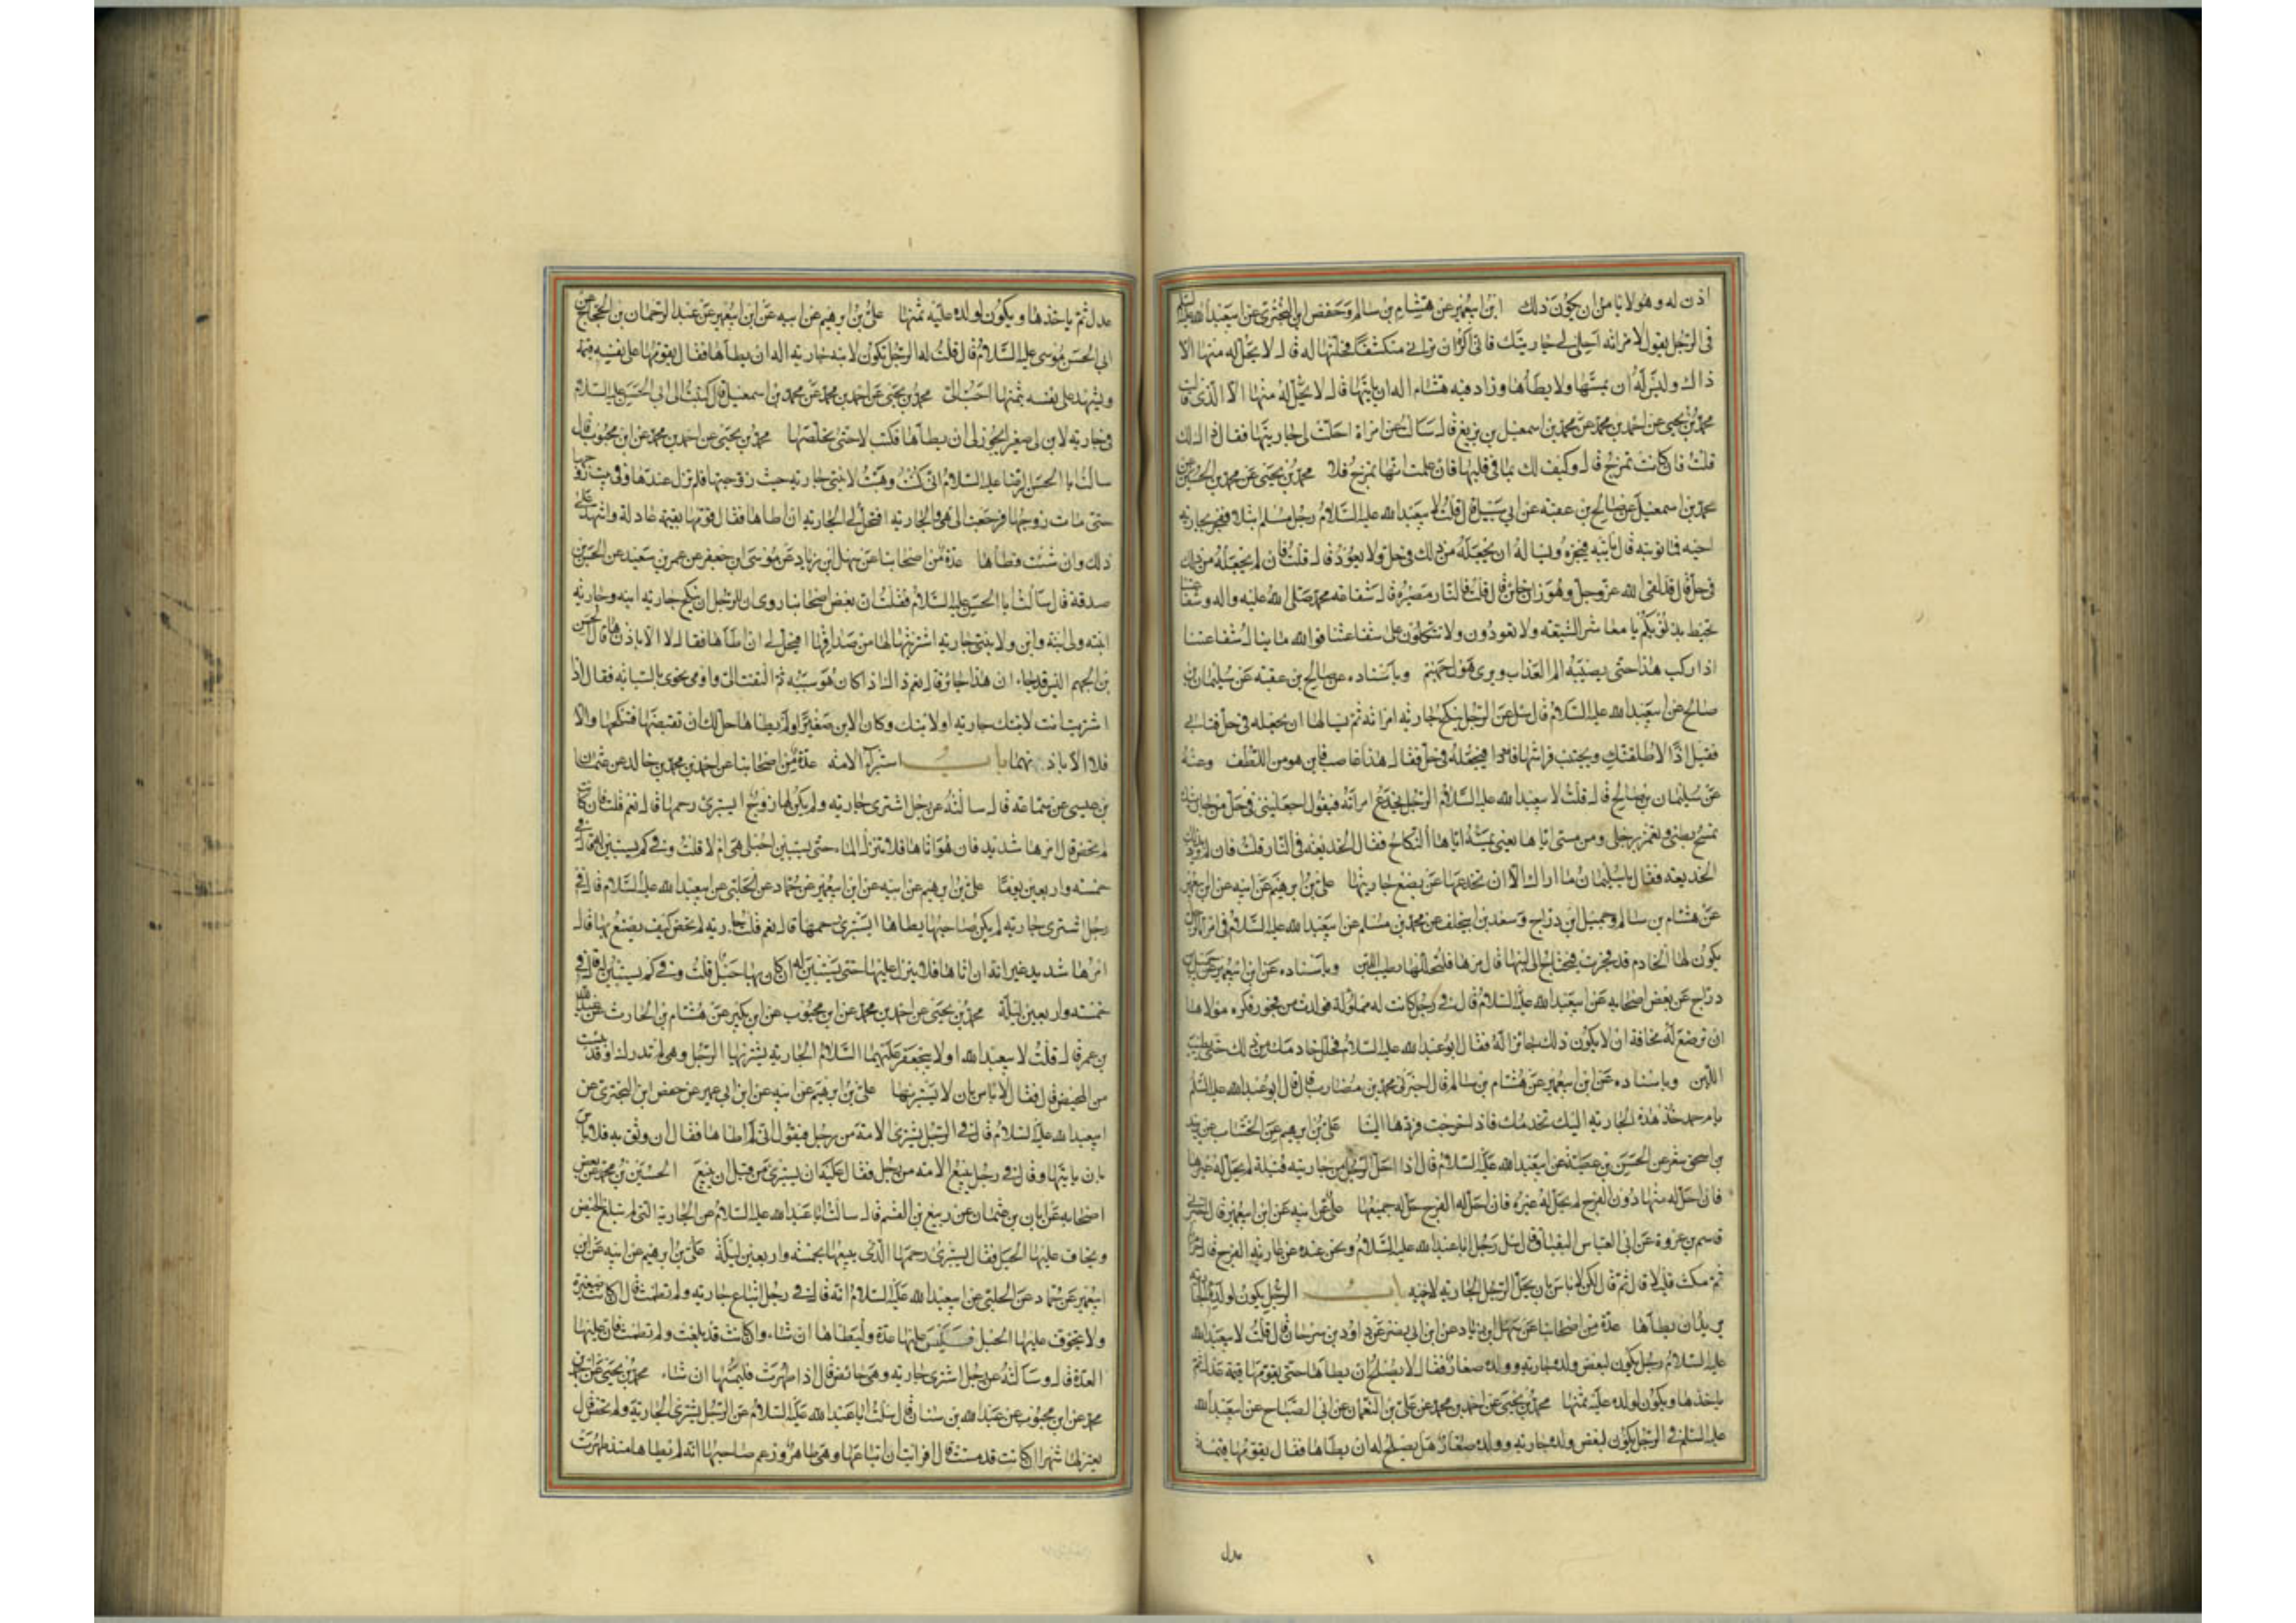 اذن له وهو لا يامن ان يكون ذلك ابن ابي عمير عن هشام بن سالم وحفص بن البختري عن ابي عبد الله عليه السلم
في الرجل يقول لامراته احلي لي جاريتك فاني اكره ان تراني منكشفا فتحلها له قال لا يحل له منها الا
ذاك وليس له ان يمسها ولا يطاها وزاد فيه هشام اله ان ياتيها قال لا يحل له منها الا الذي قالت
محمد بن يحيى عن احمد بن محمد عن محمد بن اسمعيل بن بزيع قال سالته عن امراة احلت لي جاريتها فقال ذاك لك
قلت فان كانت تمزح قال وكيف لك بما في قلبها فان علمت انها تمزح فلا محمد بن يحيى عن محمد بن الحسين عن
محمد بن اسمعيل عن صالح بن عقبه عن ابي شبل قال قلت لابي عبد الله عليه السلام رجل مسلم ابتلي ففجر بجارية
اخيه فما توبته قال ياتيه فيخبره ويساله ان يجعله من ذلك في حل ولا يعود قال قلت فان لم يجعله من ذلك
في حل قال قد لقي الله عز وجل وهو زان خائن قال قلت فالنار مصيره قال شفاعة محمد صلى الله عليه واله وشفاعتنا
تحيط بذنوبكم يا معاشر الشيعه ولا تعودون ولا تتكلون على شفاعتنا فوالله ما ينال شفاعتنا
اذا ركب هذا حتى يصيبه الم العذاب ويرى هول جهنم وباسناده عن صالح بن عقبه عن سليمان بن
صالح عن ابي عبد الله عليه السلام قال سئل عن الرجل ينكح جارية امراته ثم يسالها ان تجعله في حل فتابى
فيقول اذا لاطلقنك ويجتنب فراشها فتجعله في حل فقال هذا غاصب فاين هو من اللطف وعنه
عن سليمان بن صالح قال قلت لابي عبد الله عليه السلام الرجل يخدع امراته فيقول اجعليني في حل من جاريتك
تمسح بطني وتغمز رجلي ومن مسي اياها يعني بمسه اياها النكاح فقال الخديعه في النار قلت فان لم يرد بذلك
الخديعه فقال يا سليمان ما اراك الا ان تخدعها عن بضع جاريتها علي بن ابرهيم عن ابيه عن ابن ابي عمير
عن هشام بن سالم وجميل بن دراج وسعد بن ابي خلف عن محمد بن مسلم عن ابي عبد الله عليه السلام في امراة الرجل
يكون لها الخادم قد فجرت فيحتاج الى لبنها قال مرها فلتحللها يطيب اللبن وباسناده عن ابن ابي عمير عن جميل بن
دراج عن بعض اصحابه عن ابي عبد الله عليه السلام قال في رجل كانت له مملوكة فولدت من فجور فكره مولاها
ان ترضع له مخافة ان لا يكون ذلك جائزا له فقال ابو عبد الله عليه السلام فحلل خادمك من ذلك حتى يطيب
اللبن وباسناده عن ابن ابي عمير عن هشام بن سالم قال اخبرني محمد بن مضارب قال قال ابو عبد الله عليه السلم
يا محمد خذ هذه الجارية اليك تخدمك فاذا خرجت فردها الينا علي بن ابرهيم عن الخشاب عن يزيد
بن اسحق شعر عن الحسن بن عطية عن ابي عبد الله عليه السلام قال اذا احل الرجل من جاريته قبلة لم يحل له غيرها
فان احل له منها دون الفرج لم يحل له غيره فان احل له الفرج حل له جميعها علي عن ابيه عن ابن ابي عمير قال اخبرني
قاسم بن عروة عن ابي العباس البقباق قال سئل رجل ابا عبد الله عليه السلام ونحن عنده عن عارية الفرج قال حرام
ثم مكث قليلا قال ثم قال لكن لا باس بان يحل الرجل الجارية لاخيه باب الرجل يكون لولده الجارية
يريد ان يطاها عدة من اصحابنا عن سهل بن زياد عن ابن ابي نصر عن داود بن سرحان قال قلت لابي عبد الله
عليه السلام رجل يكون لبعض ولده جارية وولده صغار فقال لا يصلح ان يطاها حتى يقومها قيمة عدل ثم
ياخذها ويكون لولده عليه ثمنها محمد بن يحيى عن احمد بن محمد عن علي بن النعمان عن ابي الصباح عن ابي عبد الله
عليه السلم في الرجل يكون لبعض ولده جارية وولده صغار هل يصلح له ان يطاها فقال يقومها قيمة
عدل
عدل ثم ياخذها ويكون لولده عليه ثمنها علي بن ابرهيم عن ابيه عن ابن ابي عمير عن عبد الرحمان بن الحجاج عن
ابي الحسن موسى عليه السلام قال قلت له الرجل تكون لابنه جارية اله ان يطاها فقال يقومها على نفسه قيمة
ويشهد على نفسه بثمنها احب الي محمد بن يحيى عن احمد بن محمد عن محمد بن اسمعيل قال كتبت الى ابي الحسن عليه السلام
في جارية لابن لي صغير ايجوز لي ان يطاها فكتب لا حتى يخلصها محمد بن يحيى عن احمد بن محمد عن ابن محبوب قال
سالت ابا الحسن الرضا عليه السلام اني كنت وهبت لابنتي جارية حيث زوجتها فلم تزل عندها وفي بيت زوجها
حتى مات زوجها فرجعت الي هي والجارية افتحل لي الجارية ان اطاها فقال قومها بقيمة عادلة واشهد على
ذلك وان شئت فطاها عدة من اصحابنا عن سهل بن زياد عن موسى بن جعفر عن عمر بن سعيد عن الحسن بن
صدقة قال سالت ابا الحسن عليه السلام فقلت ان بعض اصحابنا روى ان للرجل ان ينكح جارية ابنه وجارية
ابنته ولي ابنة وابن ولابنتي جارية اشتريتها لها من صداقها افيحل لي ان اطاها فقال لا الا باذنها قال الحسن
بن الجهم اليس قد جاء ان هذا جائز قال نعم ذاك اذا كان هو سببه ثم التفت الي واومى نحوي بالسبابه فقال اذا
اشتريت انت لابنتك جارية او لابنك وكان الابن صغيرا ولم يطاها حل لك ان تقبضها فتنكحها والا
فلا الا باذنهما باب استبراء الامة عدة من اصحابنا عن احمد بن محمد بن خالد عن عثمان
بن عيسى عن سماعه قال سالته عن رجل اشترى جارية ولم يكن لها زوج ايستبرئ رحمها قال نعم قلت فان كانت
لم تحض قال امرها شديد فان هو اتاها فلا ينزل الماء حتى يستبين احبلى هي ام لا قلت وفي كم يستبين له قال في
خمسه واربعين يوما علي بن ابرهيم عن ابيه عن ابن ابي عمير عن حماد عن الحلبي عن ابي عبد الله عليه السلام قال في
رجل اشترى جارية لم يكن صاحبها يطاها ايستبرئ رحمها قال نعم قلت جارية لم تحض كيف يصنع بها قال
امرها شديد غير انه ان اتاها فلا ينزل عليها حتى يستبين له ان كان بها حبل قلت وفي كم يستبين له قال في
خمسه واربعين ليلة محمد بن يحيى عن احمد بن محمد عن ابن محبوب عن ابن بكير عن هشام بن الحارث عن عبد الله
بن عمر قال قلت لابي عبد الله او لابي جعفر عليهما السلام الجارية يشتريها الرجل وهي لم تدرك او قد يئست
من المحيض قال فقال لا باس بان لا يستبرئها علي بن ابرهيم عن ابيه عن ابن ابي عمير عن حفص بن البختري عن
ابي عبد الله عليه السلام قال في الرجل يشتري الامة من رجل فيقول اني لم اطاها فقال ان وثق به فلا باس
بان ياتيها وقال في رجل يبيع الامه من رجل فقال عليه ان يستبرئ من قبل ان يبيع الحسين بن محمد عن بعض
اصحابه عن ابان بن عثمان عن ربيع بن القسم قال سالت ابا عبد الله عليه السلام عن الجارية التي لم تبلغ الحيض
ويخاف عليها الحبل فقال يستبرئ رحمها الذي يبيعها بخمسه واربعين ليلة علي بن ابرهيم عن ابيه عن ابن
ابي عمير عن حماد عن الحلبي عن ابي عبد الله عليه السلام انه قال في رجل ابتاع جارية ولم تطمث قال ان كانت صغيرة
ولا يتخوف عليها الحبل فليس عليها عدة وليطاها ان شاء وان كانت قد بلغت ولم تطمث فان عليها
العدة قال وسالته عن رجل اشترى جارية وهي حائض قال اذا طهرت فليمسها ان شاء محمد بن يحيى عن احمد بن
محمد عن ابن محبوب عن عبد الله بن سنان قال سالت ابا عبد الله عليه السلام عن الرجل يشتري الجارية ولم تحض قال
يعتزلها شهرا ان كانت قد مست قال افرايت ان ابتاعها وهي طاهر وزعم صاحبها انه لم يطاها منذ طهرت